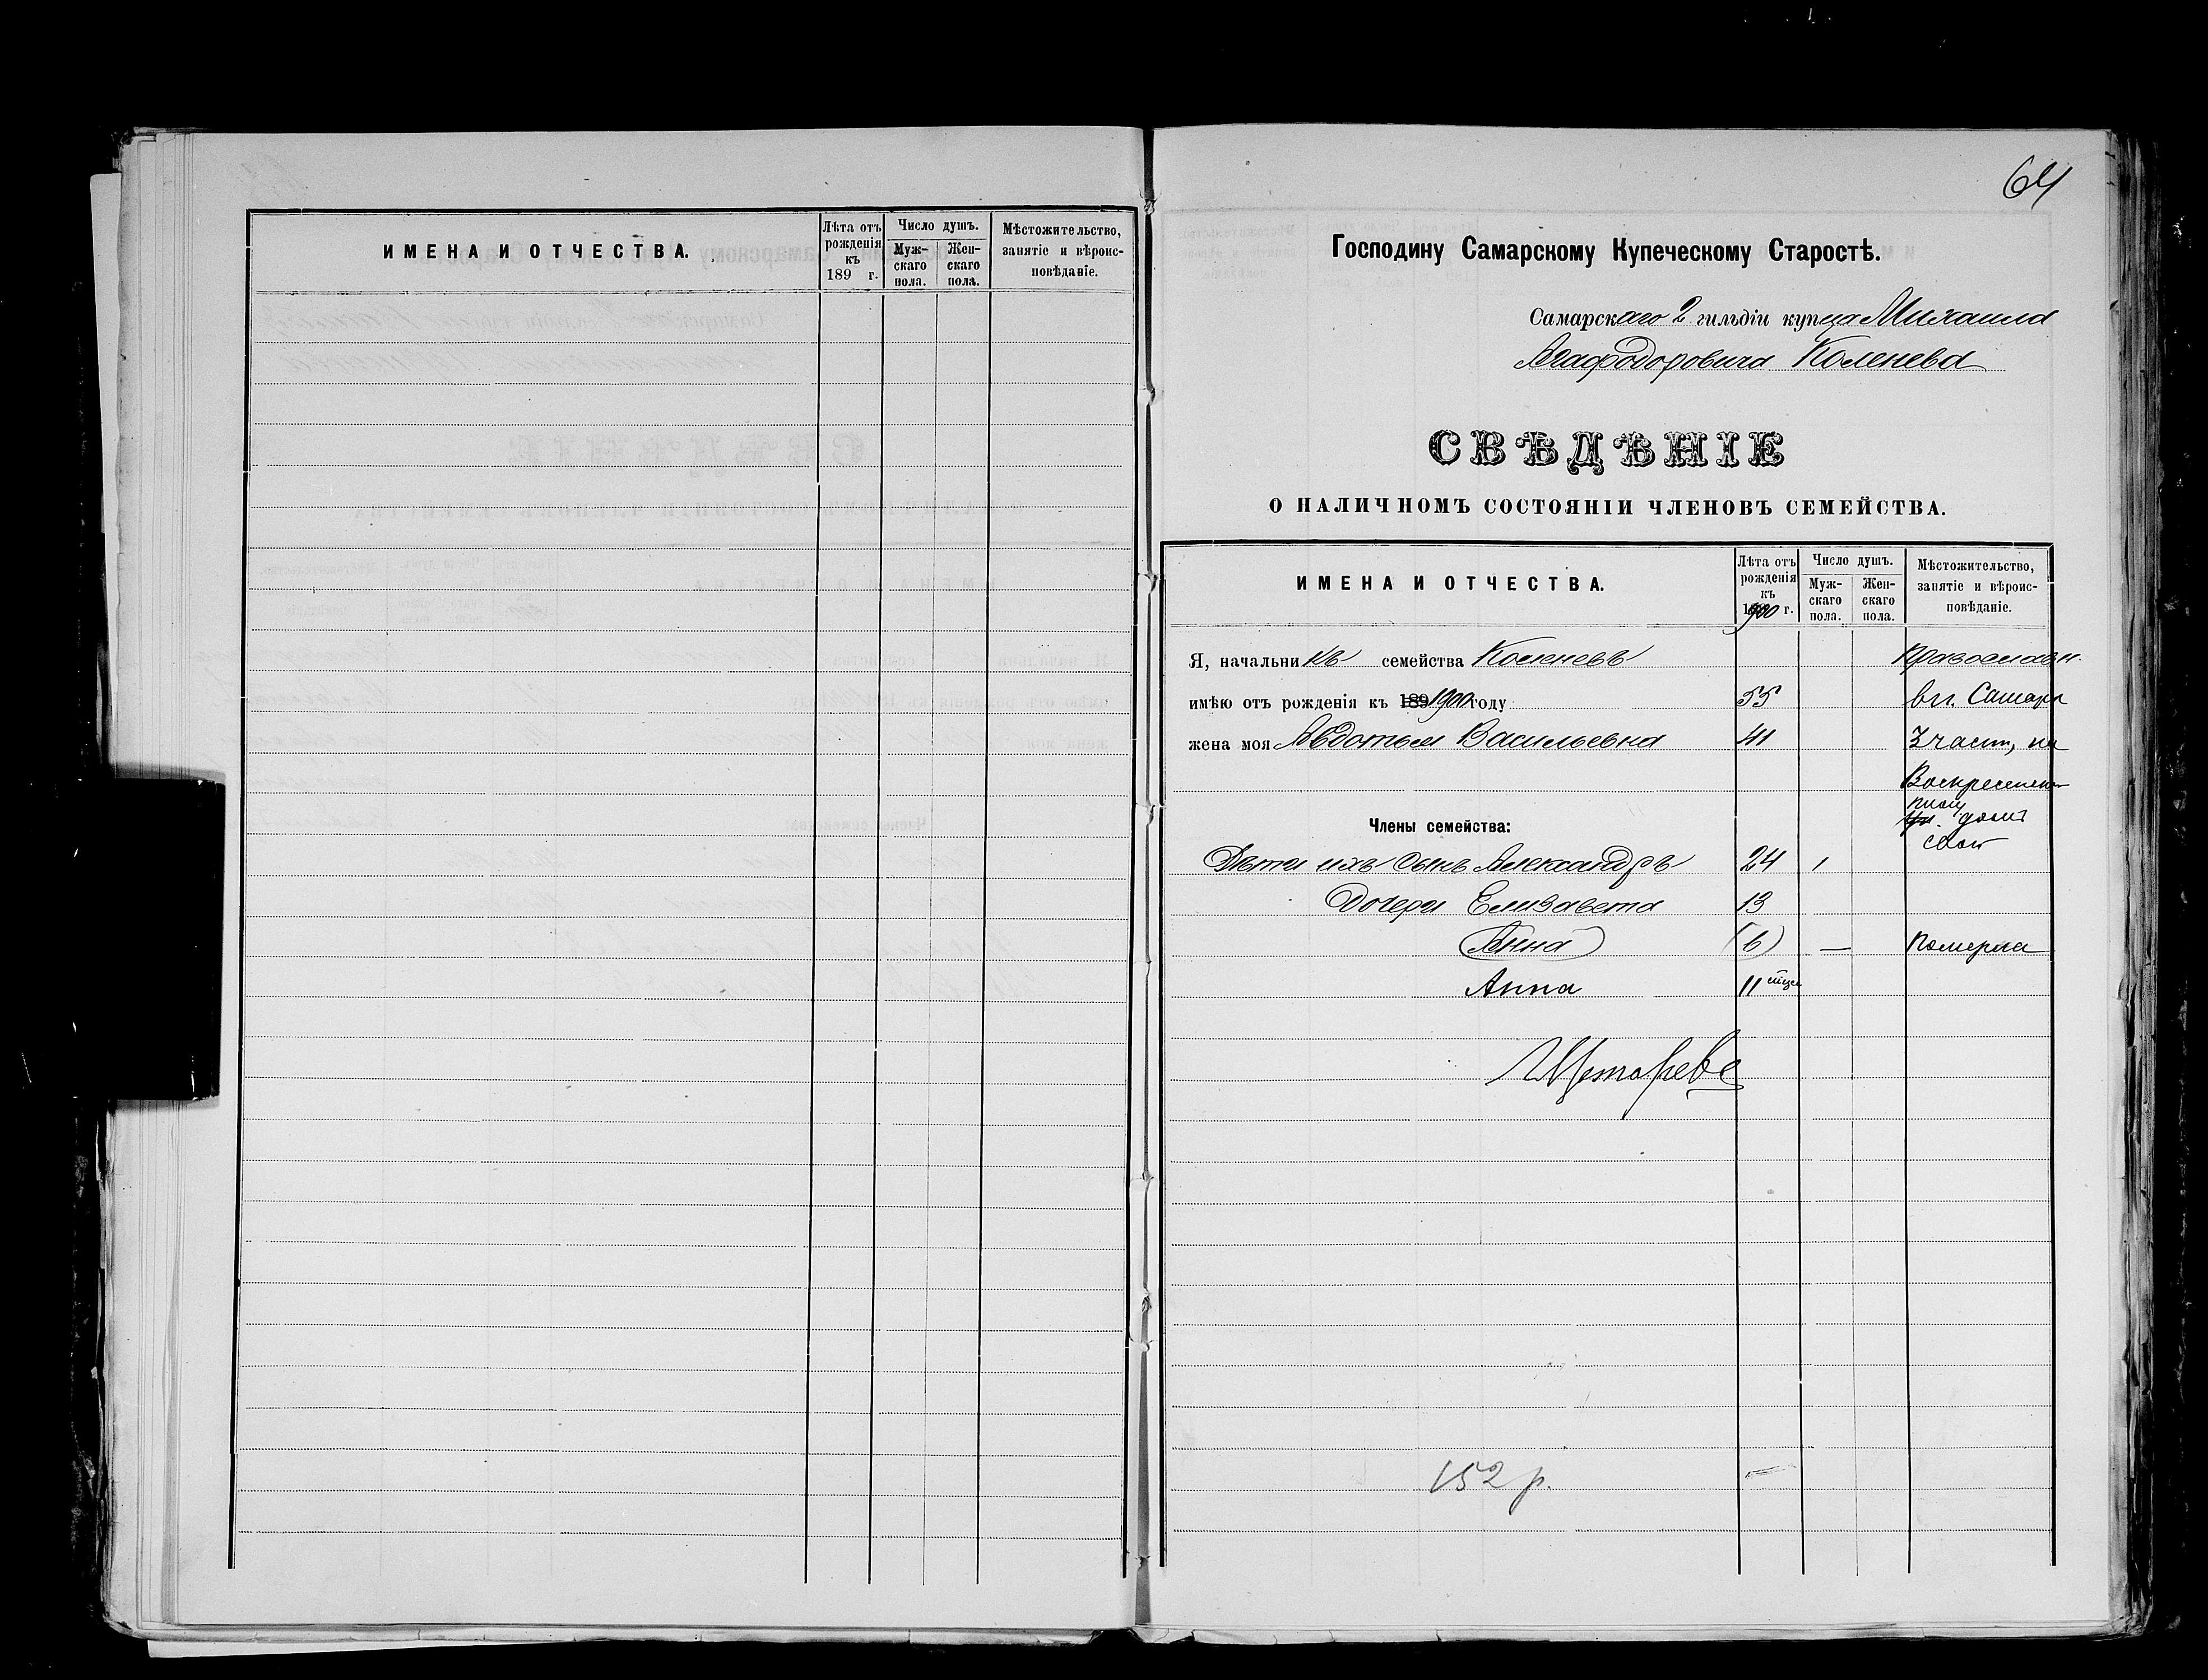 ИМЕНА И ОТЧЕСТВА.
Лѣта отъ рожденія къ 189 г.
Число душъ.
Муж-скаго пола.
Жен-скаго пола.
Мѣстожительство, занятіе и вѣроис-повѣданіе.
64
Господину Самарскому Купеческому Старостѣ.
Самарскаго 2 гильдіи купца Михаила
Агафодоровича Коленева
СВѢДѢНІЕ
О НАЛИЧНОМЪ СОСТОЯНІИ ЧЛЕНОВЪ СЕМЕЙСТВА.
ИМЕНА И ОТЧЕСТВА.
Лѣта отъ рожденія къ 1900 г.
Число душъ.
Муж-скаго пола.
Жен-скаго пола.
Мѣстожительство, занятіе и вѣроис-повѣданіе.
Я, начальникъ семейства Коленевъ Православн.
имѣю отъ рожденія къ 189 1900 году 55 въ г. Самарѣ
жена моя Авдотья Васильевна 41 3 част, на
Воскресенск
Члены семейства: домъ
свой
Дѣти ихъ Сынъ Александръ 24 1
Дочери Елизавета 13
(Анна) (6) — Померла
Анна 11 мѣс
152 р.